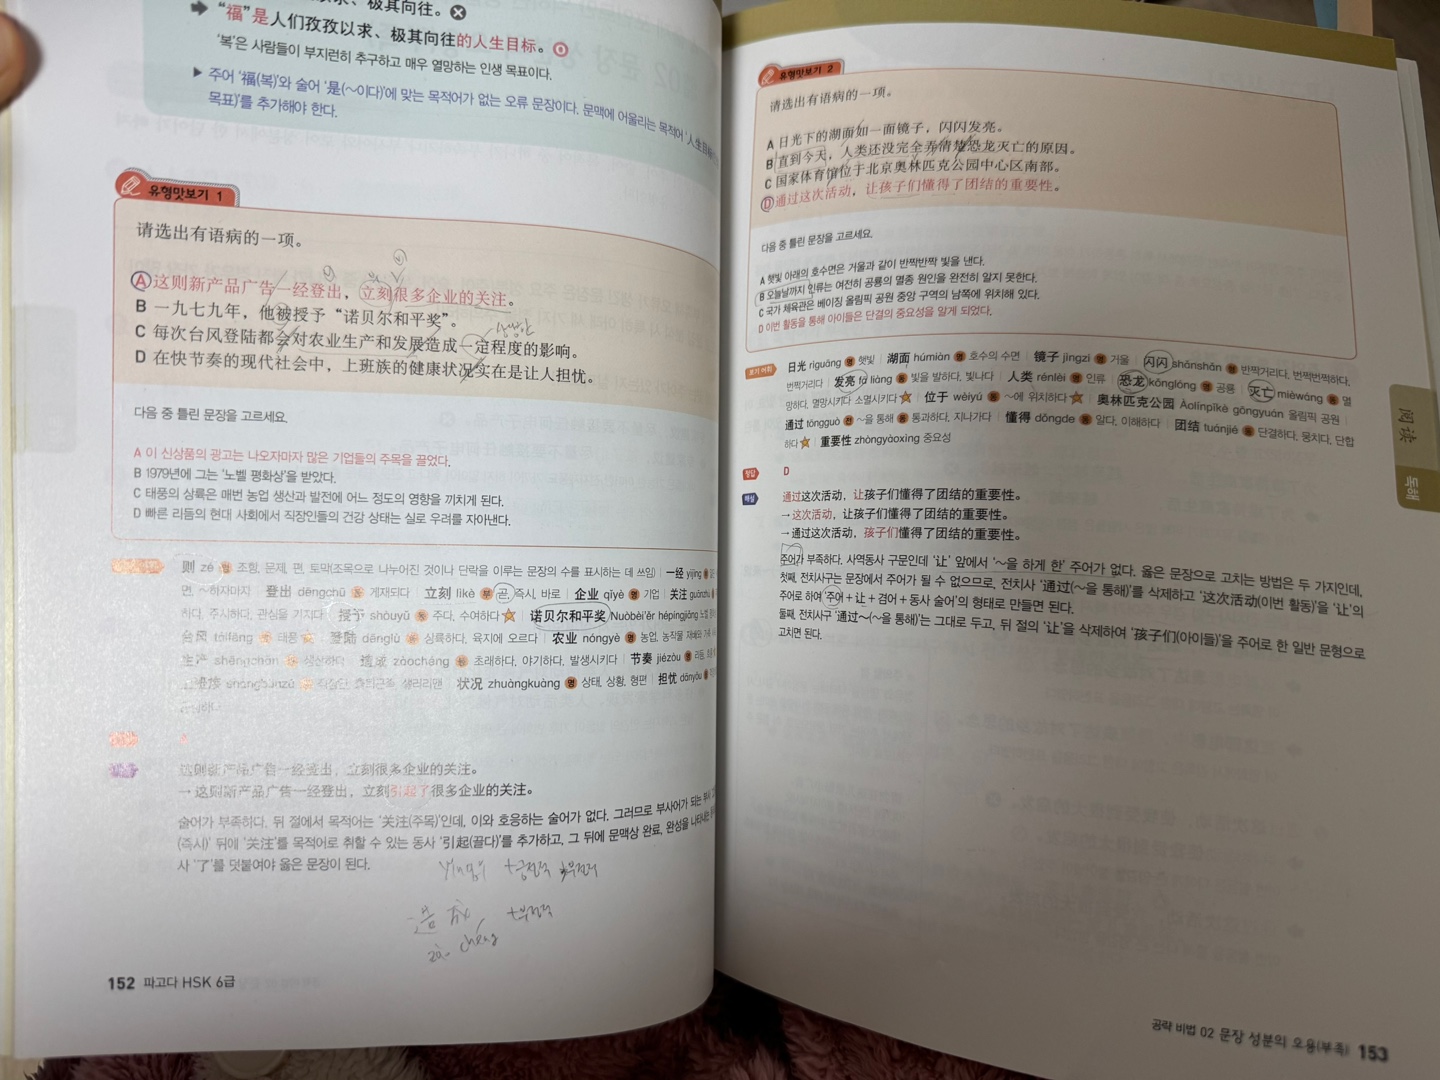 求、极其向往。
➡ “福”是人们孜孜以求、极其向往的人生目标。
‘복’은 사람들이 부지런히 추구하고 매우 열망하는 인생 목표이다.
▶ 주어 ‘福(복)’와 술어 ‘是(~이다)’에 맞는 목적어가 없는 오류 문장이다. 문맥에 어울리는 목적어 ‘人生目标
목표)’를 추가해야 한다.
유형맛보기 1
请选出有语病的一项。
A 这则新产品广告一经登出，立刻很多企业的关注。
B 一九七九年，他被授予“诺贝尔和平奖”。
C 每次台风登陆都会对农业生产和发展造成一定程度的影响。
D 在快节奏的现代社会中，上班族的健康状况实在是让人担忧。
다음 중 틀린 문장을 고르세요.
A 이 신상품의 광고는 나오자마자 많은 기업들의 주목을 끌었다.
B 1979년에 그는 ‘노벨 평화상’을 받았다.
C 태풍의 상륙은 매번 농업 생산과 발전에 어느 정도의 영향을 끼치게 된다.
D 빠른 리듬의 현대 사회에서 직장인들의 건강 상태는 실로 우려를 자아낸다.
则 zé 양 조항, 문제, 편, 토막(조목으로 나누어진 것이나 단락을 이루는 문장의 수를 표시하는 데 쓰임) | 一经 yìjīng
면, ~하자마자 | 登出 dēngchū 동 게재되다 | 立刻 lìkè 부 곧, 즉시, 바로 | 企业 qǐyè 명 기업 | 关注 guānzhù
하다, 주시하다, 관심을 가지다 | 授予 shòuyǔ 동 주다, 수여하다 | 诺贝尔和平奖 Nuòbèi'ěr hépíngjiǎng
台风 táifēng 명 태풍 | 登陆 dēnglù 동 상륙하다, 육지에 오르다 | 农业 nóngyè 명 농업, 농작물
生产 shēngchǎn 동 생산하다 | 造成 zàochéng 동 초래하다, 야기하다, 발생시키다 | 节奏 jiézòu 명 리듬
shàngbānzú 명 직장인, 출퇴근족, 샐러리맨 | 状况 zhuàngkuàng 명 상태, 상황, 형편 | 担忧 dānyōu
这则新产品广告一经登出，立刻很多企业的关注。
→ 这则新产品广告一经登出，立刻引起了很多企业的关注。
술어가 부족하다. 뒤 절에서 목적어는 ‘关注(주목)’인데, 이와 호응하는 술어가 없다. 그러므로 부사어가 되는 부사
(즉시)’ 뒤에 ‘关注’를 목적어로 취할 수 있는 동사 ‘引起(끌다)’를 추가하고, 그 뒤에 문맥상 완료, 완성을 나타내는
사 ‘了’를 덧붙여야 옳은 문장이 된다.
yǐnqǐ +긍정적 +부정적
造成 +부정적
zào chéng
152 파고다 HSK 6급
유형맛보기 2
请选出有语病的一项。
A 日光下的湖面如一面镜子，闪闪发亮。
B 直到今天，人类还没完全弄清楚恐龙灭亡的原因。
C 国家体育馆位于北京奥林匹克公园中心区南部。
D 通过这次活动，让孩子们懂得了团结的重要性。
다음 중 틀린 문장을 고르세요.
A 햇빛 아래의 호수면은 거울과 같이 반짝반짝 빛을 낸다.
B 오늘날까지 인류는 여전히 공룡의 멸종 원인을 완전히 알지 못한다.
C 국가 체육관은 베이징 올림픽 공원 중앙 구역의 남쪽에 위치해 있다.
D 이번 활동을 통해 아이들은 단결의 중요성을 알게 되었다.
보기 어휘 日光 rìguāng 명 햇빛 | 湖面 húmiàn 명 호수의 수면 | 镜子 jìngzi 명 거울 | 闪闪 shǎnshǎn 형 반짝거리다, 번쩍번쩍하다,
번쩍거리다 | 发亮 fā liàng 동 빛을 발하다, 빛나다 | 人类 rénlèi 명 인류 | 恐龙 kǒnglóng 명 공룡 | 灭亡 mièwáng 동 멸
망하다, 멸망시키다, 소멸시키다 | 位于 wèiyú 동 ~에 위치하다 | 奥林匹克公园 Àolínpǐkè gōngyuán 올림픽 공원 |
通过 tōngguò 전 ~을 통해 동 통과하다, 지나가다 | 懂得 dǒngde 동 알다, 이해하다 | 团结 tuánjié 동 단결하다, 뭉치다, 단합
하다 | 重要性 zhòngyàoxìng 중요성
정답 D
해설 通过这次活动，让孩子们懂得了团结的重要性。
→ 这次活动，让孩子们懂得了团结的重要性。
→ 通过这次活动，孩子们懂得了团结的重要性。
주어가 부족하다. 사역동사 구문인데 ‘让’ 앞에서 ‘~을 하게 한’ 주어가 없다. 옳은 문장으로 고치는 방법은 두 가지인데,
첫째, 전치사구는 문장에서 주어가 될 수 없으므로, 전치사 ‘通过(~을 통해)’를 삭제하고 ‘这次活动(이번 활동)’을 ‘让’의
주어로 하여 ‘주어 + 让 + 겸어 + 동사 술어’의 형태로 만들면 된다.
둘째, 전치사구 ‘通过~(~을 통해)’는 그대로 두고, 뒤 절의 ‘让’을 삭제하여 ‘孩子们(아이들)’을 주어로 한 일반 문형으로
고치면 된다.
阅读
독해
공략 비법 02 문장 성분의 오용(부족) 153